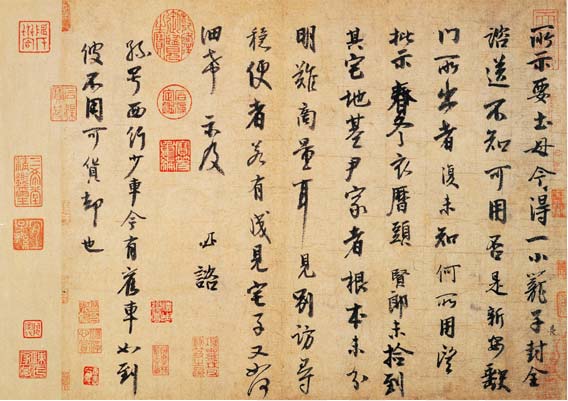 所示要土母今得一小籠子封全
諮送不知可用否是新安缺
門所出者復未知何所用望
批示春冬衣曆頭賢郎未拾到
其宅地基尹家者根本未分
明難商量耳見別訪尋
穩便者若有成見宅子又如何
細希示及 必諮
孫号西行少車今有舊車如到
彼不用可貨却也